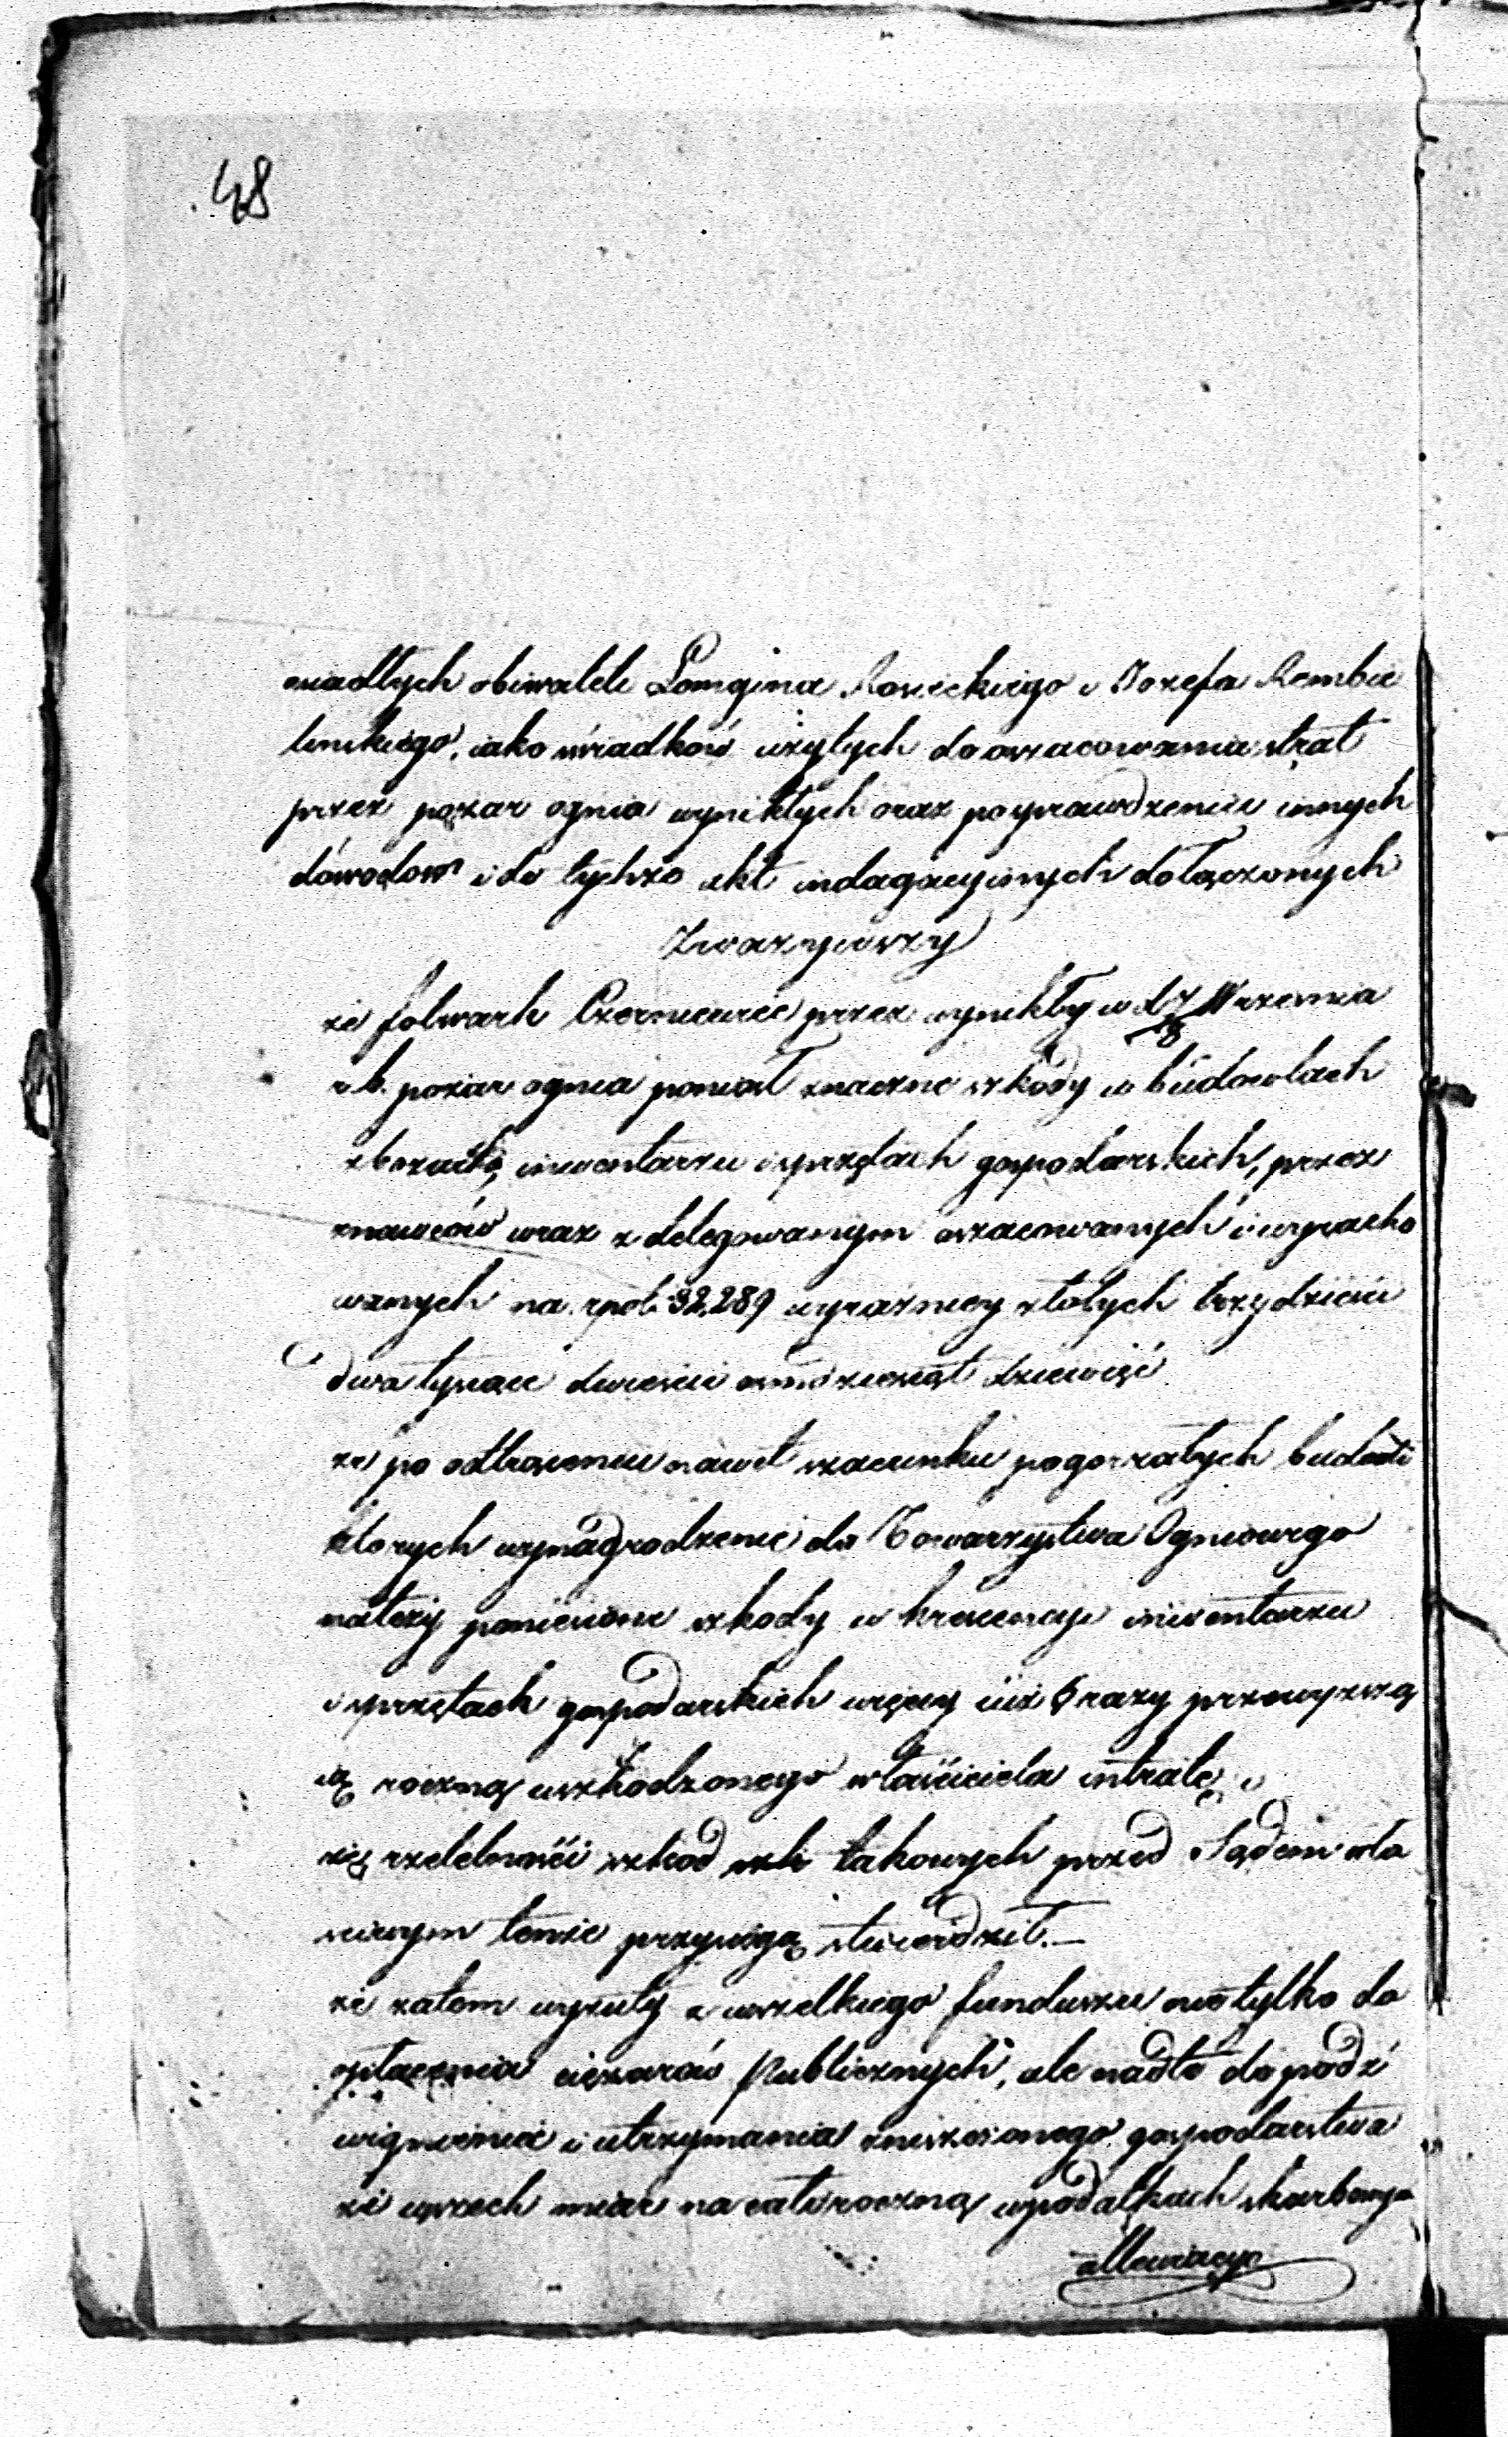 48
osiadłych obiwateli Longina Rosieckiego i Jozefa Rembie
linskiego, iako świadków użytych do oszacowania strat
przez pożar ognia wynikłych oraz po sprawdzeniu innych
dowodow i do tychże akt indagacyinych dołączonych
Zważywszy
że folwark Czerniewice przez wynikły w d. Września
r. b. pożar ognia poniosł znaczne szkody w budowlach
zbożach, inwentarzu i sprzętach gospodarskich, przez
znawców wraz z delegowanym oszacowanych i wyracho
wanych na 32,289 wyraźniey złotych trzydzieści
dwa tysiące dwieście ośmdziesiąt dziewięć
że po odtrąceniu nawet szacunku pogorzałych budowli
ktorych wynagrodzenie do Towarzystwa Ogniowego
należy poniesione szkody w krescencyi inwentarzu
i sprzętach gospodarskich więcey iuż razy przewyższa
ią roczną uszkodzonego właściciela intratę i
że rzetelności szkod takowych przed Sądem wła
sciwym tenże przysięgą stwierdził.—
że zatem wyzuty z wszelkiego funduszu nie tylko do
opłacenia ciężarów Publicznych, ale nadto do podź
wignienia i utrzymania zniszczonego gospodarstwa
ze wszech miar na całoroczną w podatkach skarbowych
allewiacyą